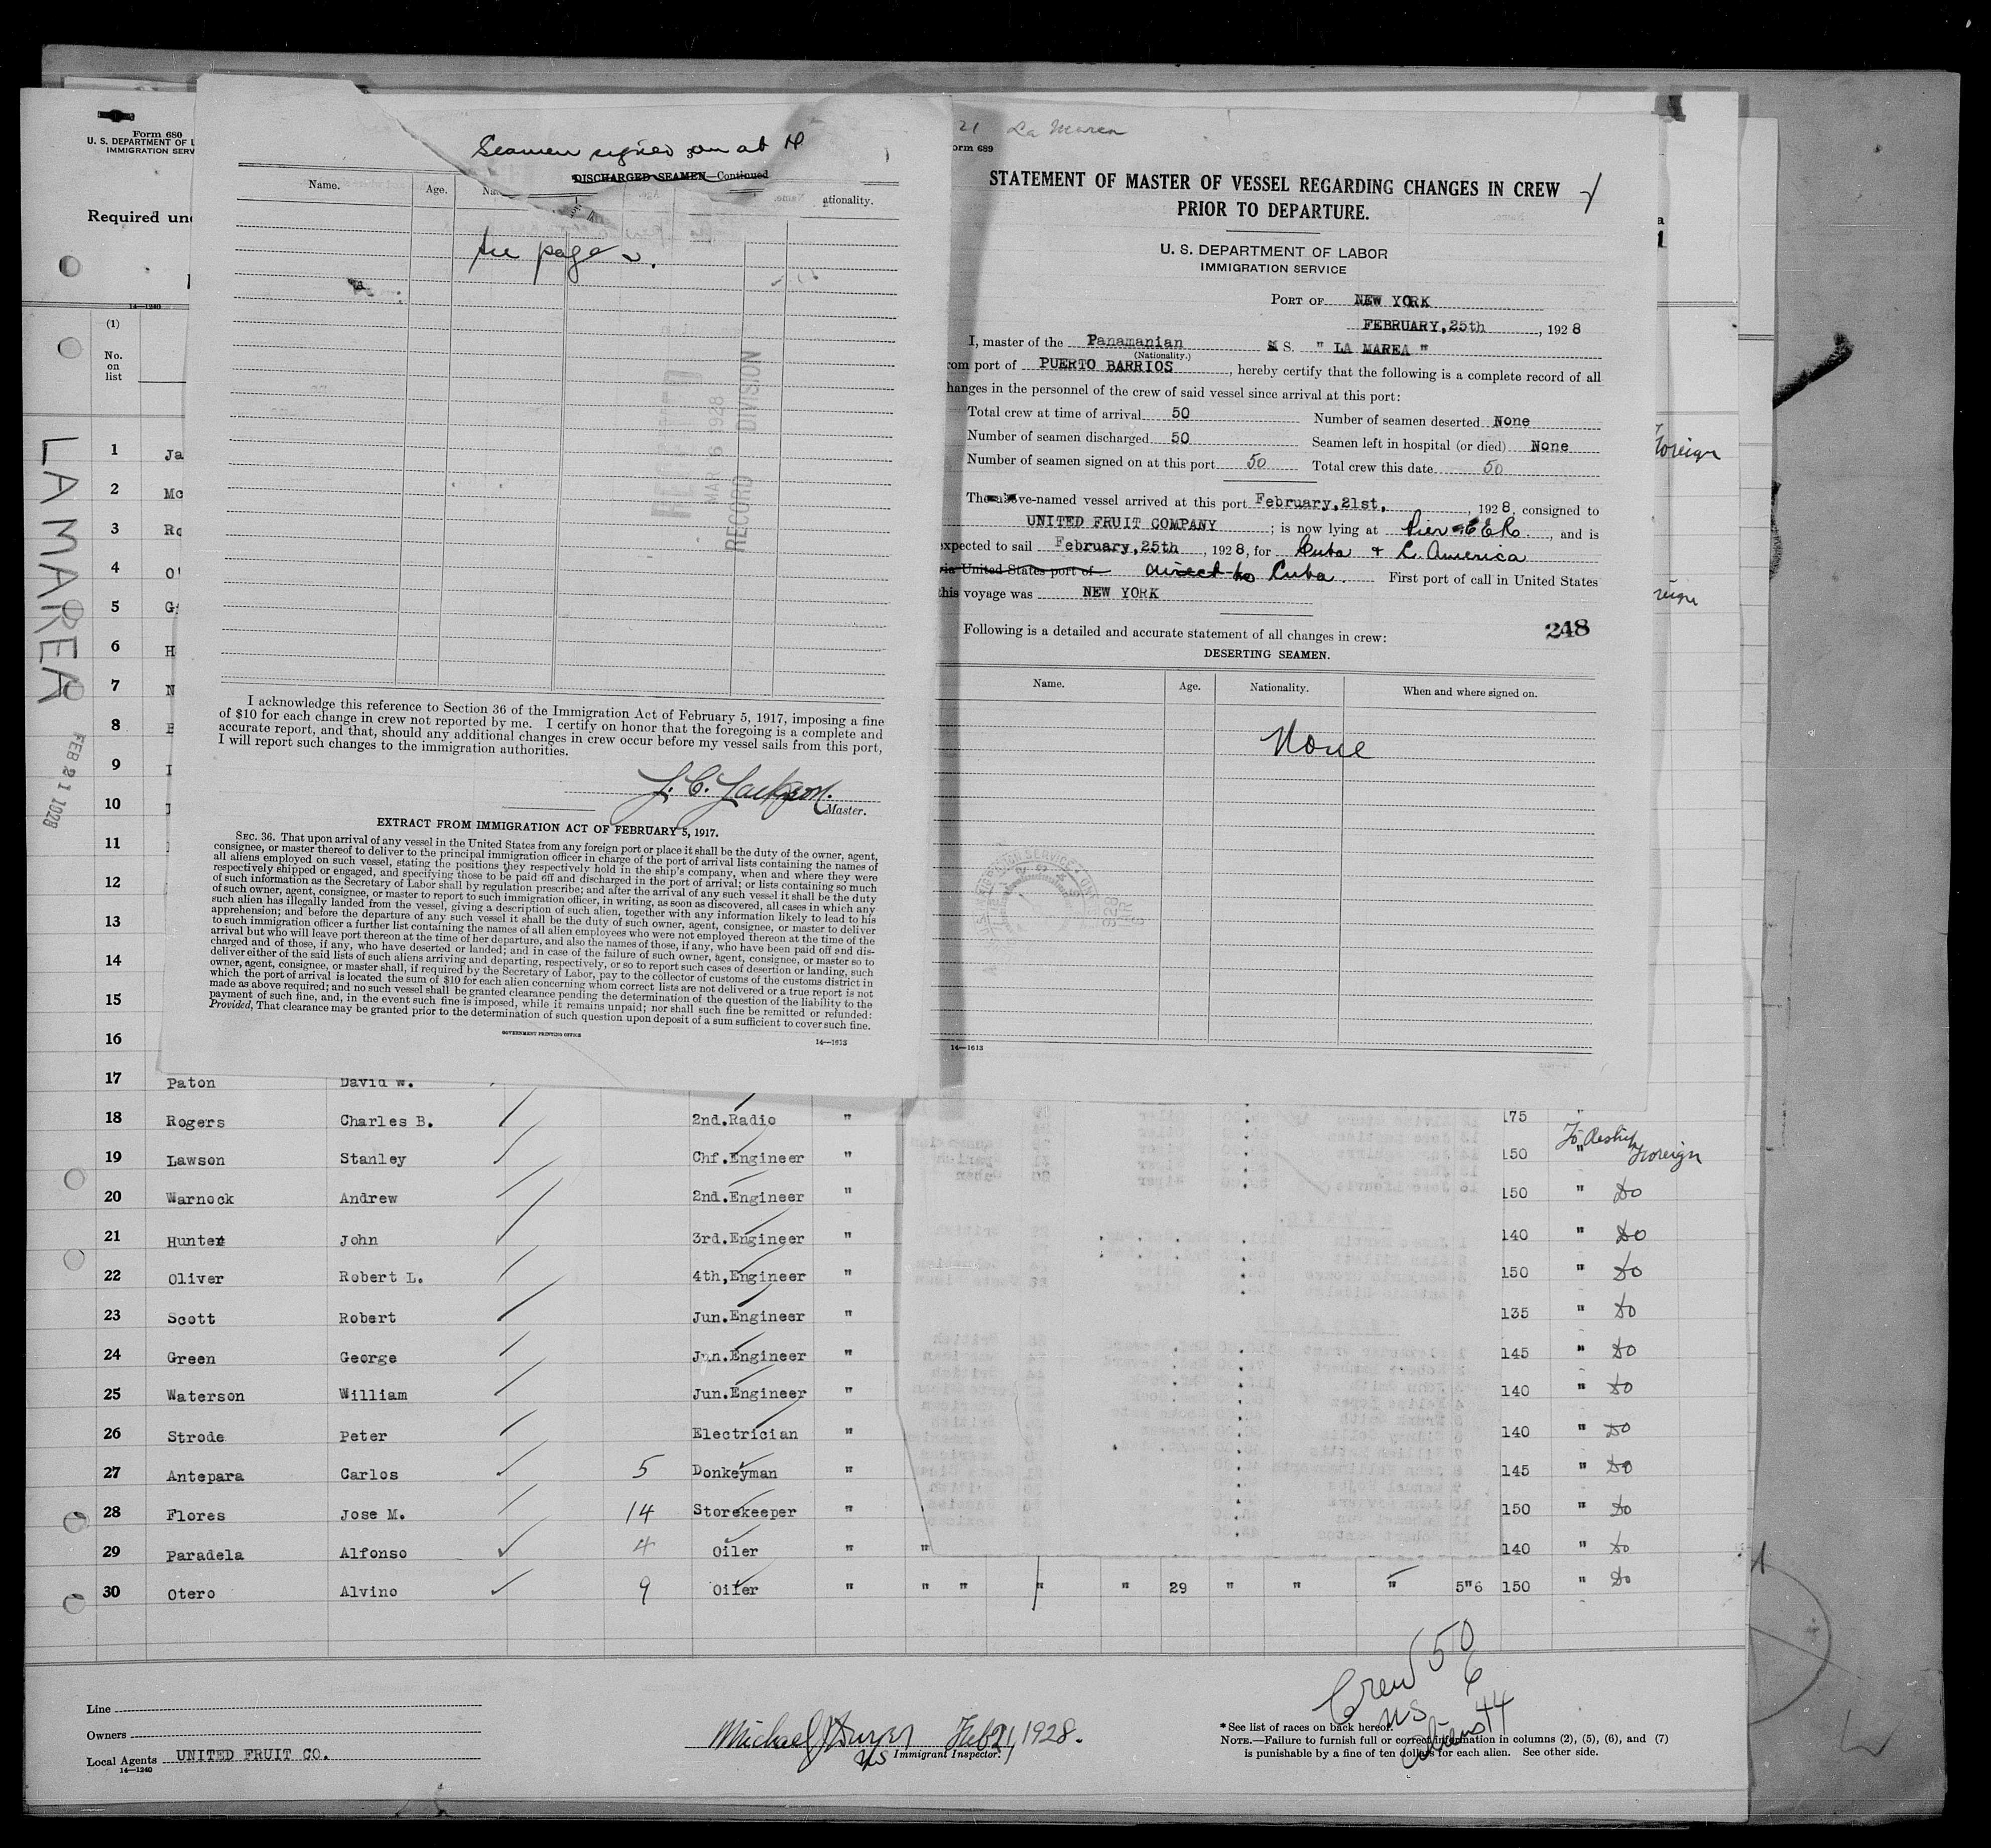 Form 680
U. S. DEPARTMENT OF L
IMMIGRATION SERV
Required un
14—1240
(1)
No.
on
list
LA MAREA
FEB 21 1928
Seamen signed on at
DISCHARGED SEAMEN—Continued
Name.
Age.
ationality.
see page 2.
RECEIVED
MAR 6 1928
RECORD DIVISION
I acknowledge this reference to Section 36 of the Immigration Act of February 5, 1917, imposing a fine
of $10 for each change in crew not reported by me. I certify on honor that the foregoing is a complete and
accurate report, and that, should any additional changes in crew occur before my vessel sails from this port,
I will report such changes to the immigration authorities.
J. C. Jackson.
Master.
EXTRACT FROM IMMIGRATION ACT OF FEBRUARY 5, 1917.
SEC. 36. That upon arrival of any vessel in the United States from any foreign port or place it shall be the duty of the owner, agent,
consignee, or master thereof to deliver to the principal immigration officer in charge of the port of arrival lists containing the names of
all aliens employed on such vessel, stating the positions they respectively hold in the ship's company, when and where they were
respectively shipped or engaged, and specifying those to be paid off and discharged in the port of arrival; or lists containing so much
of such information as the Secretary of Labor shall by regulation prescribe; and after the arrival of any such vessel it shall be the duty
of such owner, agent, consignee, or master to report to such immigration officer, in writing, as soon as discovered, all cases in which any
such alien has illegally landed from the vessel, giving a description of such alien, together with any information likely to lead to his
apprehension; and before the departure of any such vessel it shall be the duty of such owner, agent, consignee, or master to deliver
to such immigration officer a further list containing the names of all alien employees who were not employed thereon at the time of the
arrival but who will leave port thereon at the time of her departure, and also the names of those, if any, who have been paid off and dis-
charged and of those, if any, who have deserted or landed; and in case of the failure of such owner, agent, consignee, or master so to
deliver either of the said lists of such aliens arriving and departing, respectively, or so to report such cases of desertion or landing, such
owner, agent, consignee, or master shall, if required by the Secretary of Labor, pay to the collector of customs of the customs district in
which the port of arrival is located the sum of $10 for each alien concerning whom correct lists are not delivered or a true report is not
made as above required; and no such vessel shall be granted clearance pending the determination of the question of the liability to the
payment of such fine, and, in the event such fine is imposed, while it remains unpaid; nor shall such fine be remitted or refunded:
Provided, That clearance may be granted prior to the determination of such question upon deposit of a sum sufficient to cover such fine.
GOVERNMENT PRINTING OFFICE
14—1613
21 La Marea
orm 689
STATEMENT OF MASTER OF VESSEL REGARDING CHANGES IN CREW
PRIOR TO DEPARTURE.
U. S. DEPARTMENT OF LABOR
IMMIGRATION SERVICE
PORT OF NEW YORK
FEBRUARY, 25th, 1928
I, master of the Panamanian S. " LA MAREA "
(Nationality.)
rom port of PUERTO BARRIOS, hereby certify that the following is a complete record of all
hanges in the personnel of the crew of said vessel since arrival at this port:
Total crew at time of arrival 50 Number of seamen deserted None
Number of seamen discharged 50 Seamen left in hospital (or died) None
Number of seamen signed on at this port 50 Total crew this date 50
The above-named vessel arrived at this port February, 21st, 1928, consigned to
UNITED FRUIT COMPANY; is now lying at Pier E R, and is
xpected to sail February, 25th, 1928, for Cuba & C. America
via United States port of direct to Cuba. First port of call in United States
this voyage was NEW YORK
248
Following is a detailed and accurate statement of all changes in crew:
DESERTING SEAMEN.
Name. Age. Nationality. When and where signed on.
None
14—1613
Foreign
reign
1 Ja
2 Mc
3 Ro
4 O'
5
6 H
7 N
8
9
10
11
12
13
14
15
16
17 Paton David W.
18 Rogers Charles B. 2nd.Radio " 175 "
19 Lawson Stanley Chf.Engineer " 150 " To Reship Foreign
20 Warnock Andrew 2nd.Engineer " 150 " Do
21 Hunter John 3rd.Engineer " 140 " Do
22 Oliver Robert L. 4th,Engineer " 150 " Do
23 Scott Robert Jun.Engineer " 135 " Do
24 Green George Jun.Engineer " 145 " Do
25 Waterson William Jun.Engineer " 140 " Do
26 Strode Peter Electrician " 140 " Do
27 Antepara Carlos 5 Donkeyman " 145 " Do
28 Flores Jose M. 14 Storekeeper " 150 " Do
29 Paradela Alfonso 4 Oiler " " 140 " Do
30 Otero Alvino 9 Oiler " " " " " 29 " " " 5"6 150 " Do
Crew 50
US 6
aliens 44
Line
Owners
Local Agents UNITED FRUIT CO.
14—1240
Michael J Dwyer Feb 21, 1928.
US Immigrant Inspector.
* See list of races on back hereof.
NOTE.—Failure to furnish full or correct information in columns (2), (5), (6), and (7)
is punishable by a fine of ten dollars for each alien. See other side.